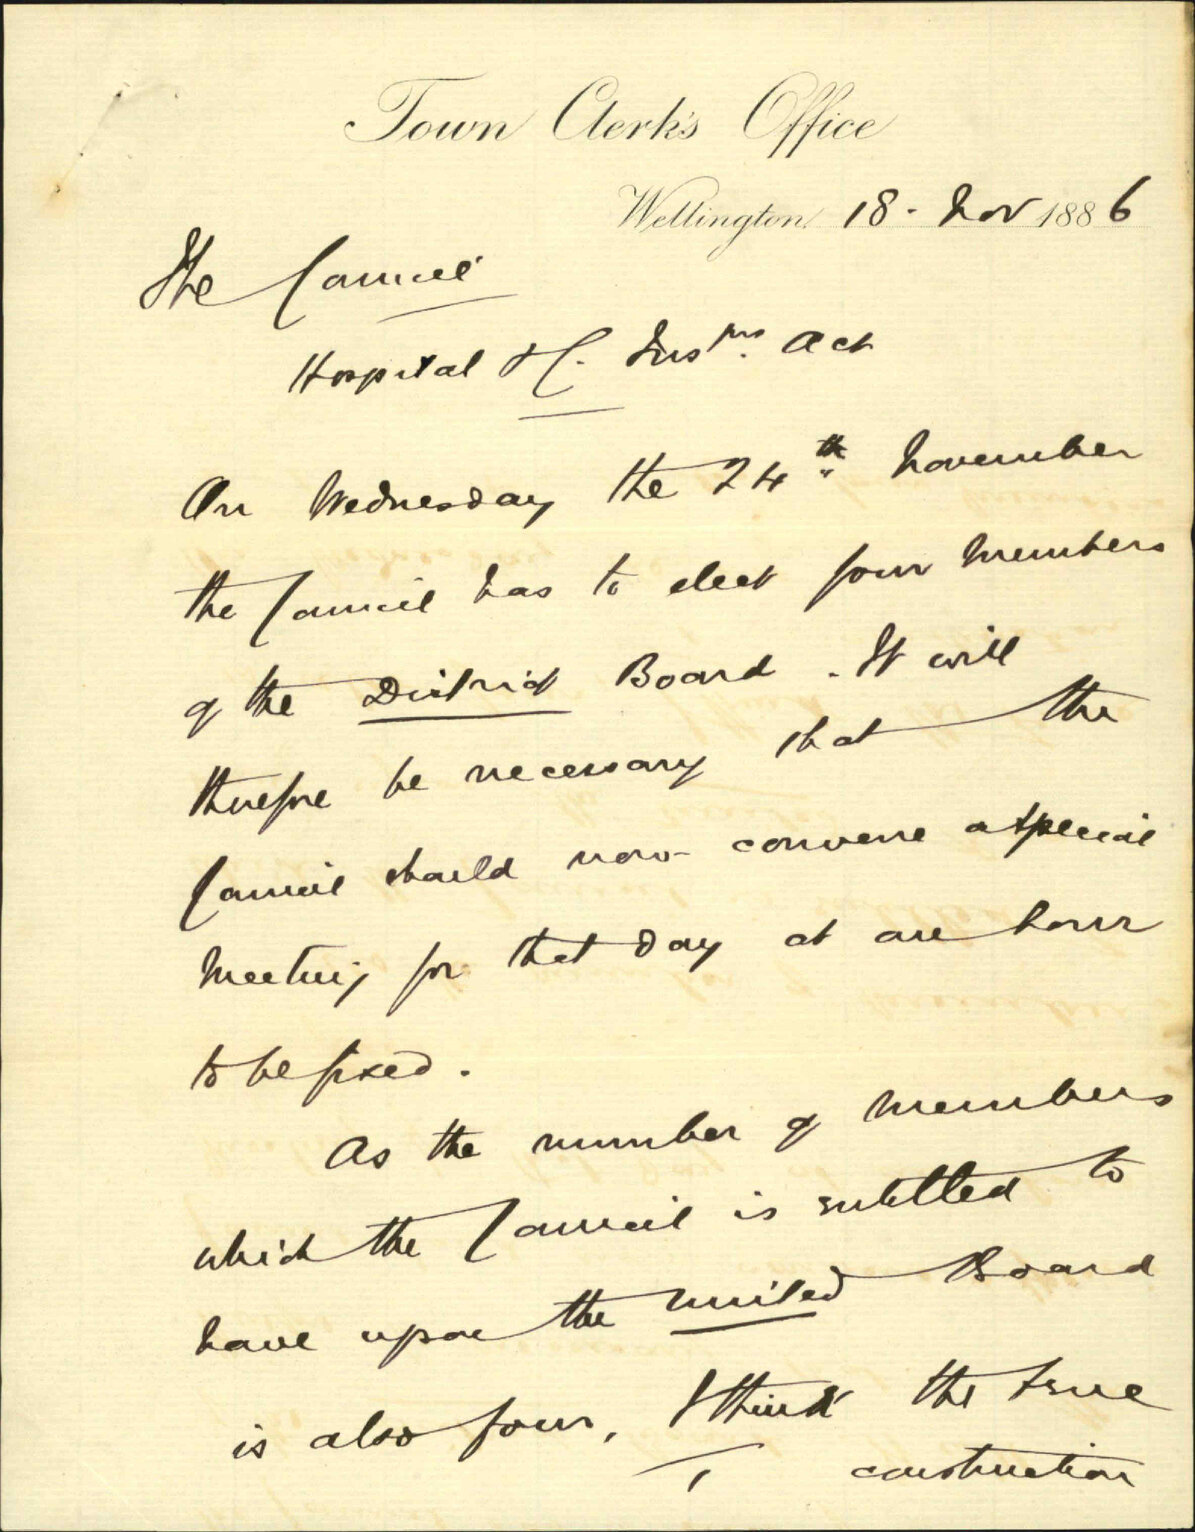 Town Clerk's Office
Wellington 18. Nov 1886
The Council
Hospital & C. Ins^ns. Act
On Wednesday the 24th November
the Council has to elect four Members
of the District Board. It will
therefore be necessary that the
Council should now convene a special
Meeting for that day at an hour
to be fixed.
As the number of members
which the Council is entitled to
have upon the United Board
is also four, I think the true
construction